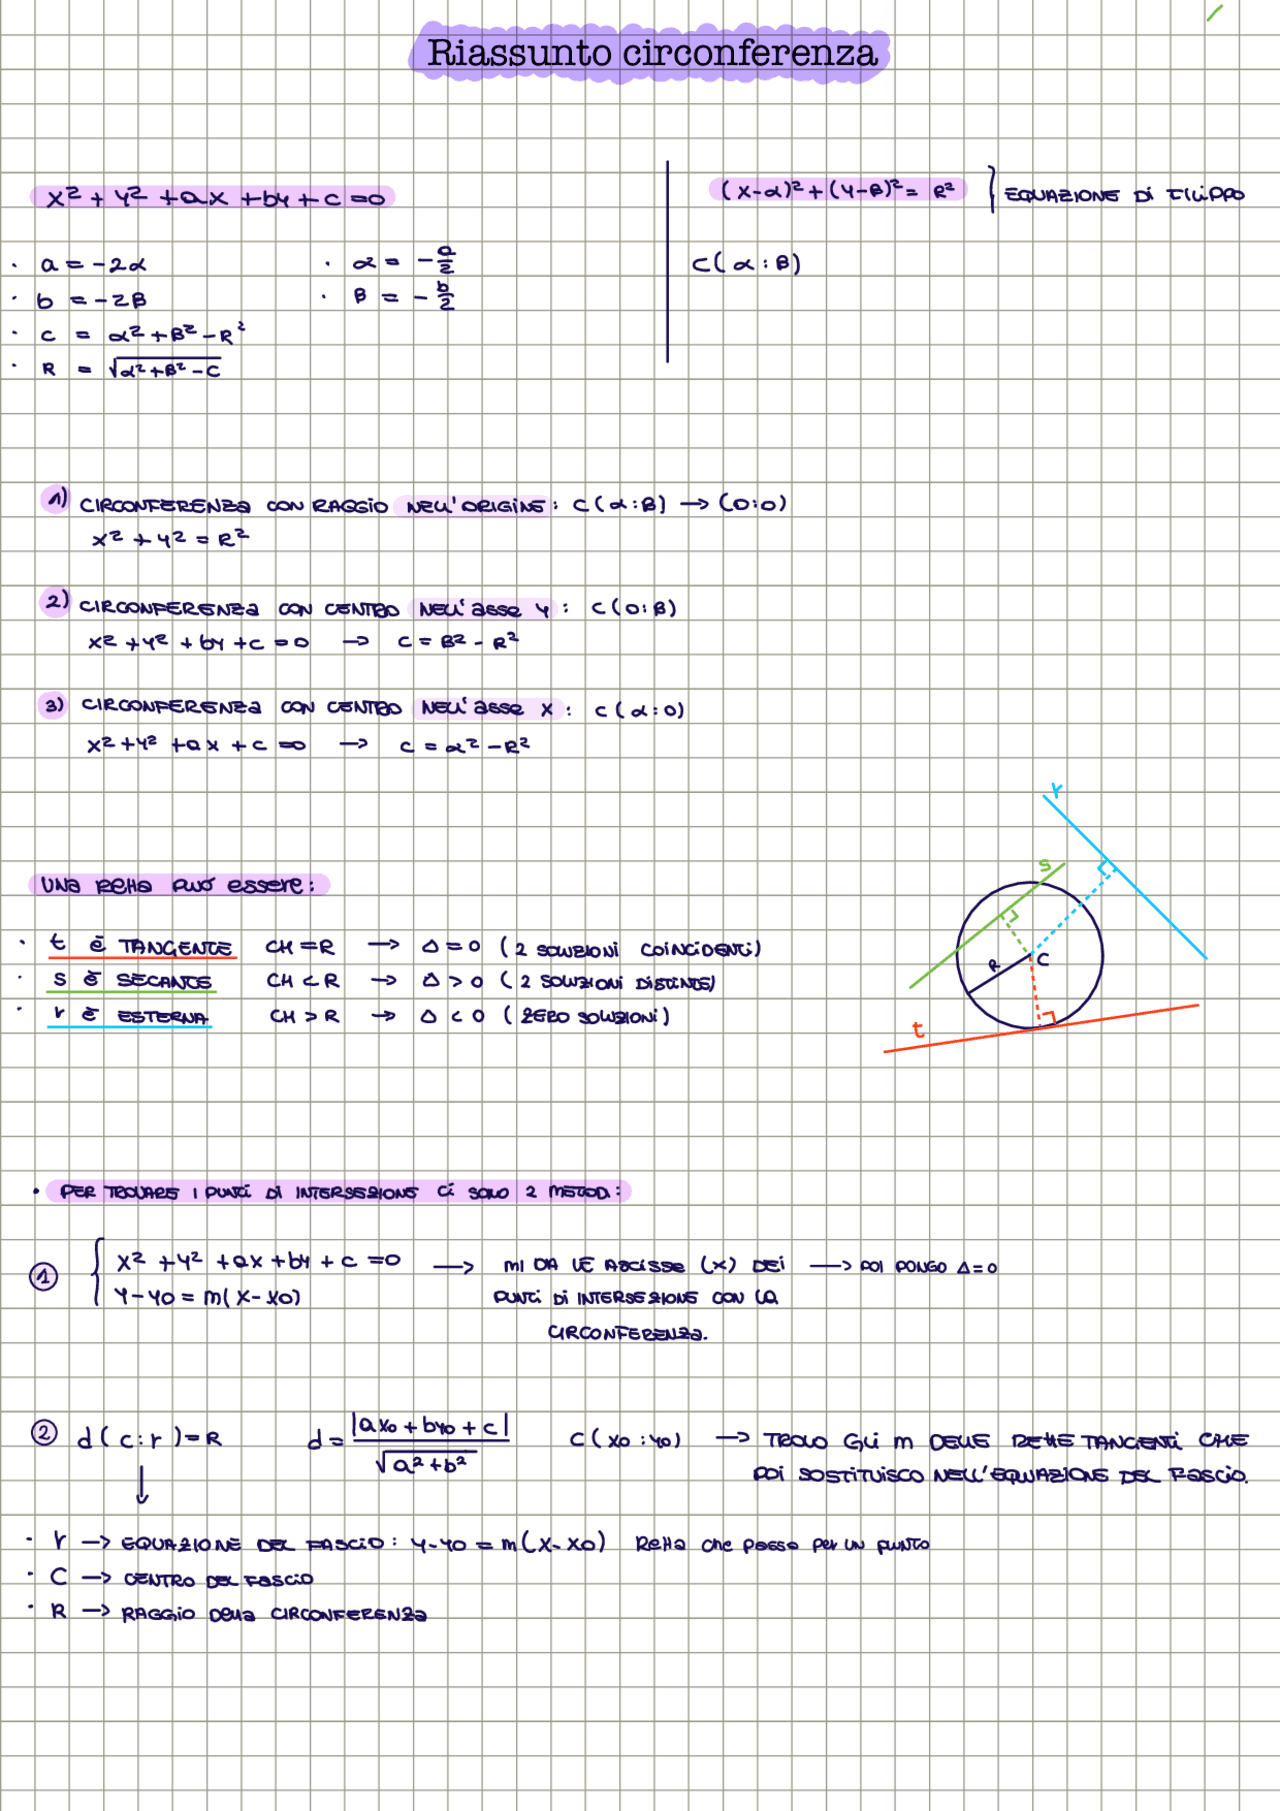 Riassunto circonferenza
x² + y² + ax + by + c = 0
(x-α)² + (y-β)² = R² } EQUAZIONE DI FILIPPO
· a = -2α · α = -a/2
C(α:β)
· b = -2β · β = -b/2
· c = α² + β² - R²
· R = √α² + β² - C
1) CIRCONFERENZA CON RAGGIO NELL'ORIGINE: C(α:β) → (0:0)
x² + y² = R²
2) CIRCONFERENZA CON CENTRO NELL'ASSE Y: C(0:β)
x² + y² + by + c = 0 → C = β² - R²
3) CIRCONFERENZA CON CENTRO NELL'ASSE X: C(α:0)
x² + y² + ax + c = 0 → C = α² - R²
UNA RETTA PUÒ ESSERE:
· t È TANGENTE CH = R → Δ = 0 (2 SOLUZIONI COINCIDENTI)
· s È SECANTE CH < R → Δ > 0 (2 SOLUZIONI DISTINTE)
· r È ESTERNA CH > R → Δ < 0 (ZERO SOLUZIONI)
r
s
R
C
t
· PER TROVARE I PUNTI DI INTERSEZIONE CI SONO 2 METODI:
① { x² + y² + ax + by + c = 0 → MI DA LE ASCISSE (X) DEI → POI PONGO Δ = 0
y - y0 = m(x - x0) PUNTI DI INTERSEZIONE CON LA
CIRCONFERENZA.
② d(c:r) = R d = |ax0 + by0 + c| / √a² + b² C(x0:y0) → TROVO GLI m DELLE RETTE TANGENTI CHE
POI SOSTITUISCO NELL'EQUAZIONE DEL FASCIO.
↓
· r → EQUAZIONE DEL FASCIO: y - y0 = m(x - x0) Retta che passa per un punto
· C → CENTRO DEL FASCIO
· R → RAGGIO DELLA CIRCONFERENZA